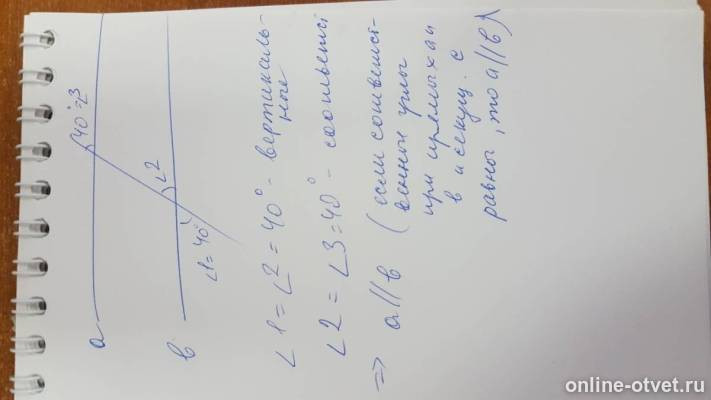 40°=∠3
∠2
∠1=40°
а
в
∠1 = ∠2 = 40° - вертикаль-
ные
∠2 = ∠3 = 40° - соответст
=> а//в (если соответст-
венные углы
при прямых а и
в и секущ. с
равны, то а//в)
online-otvet.ru